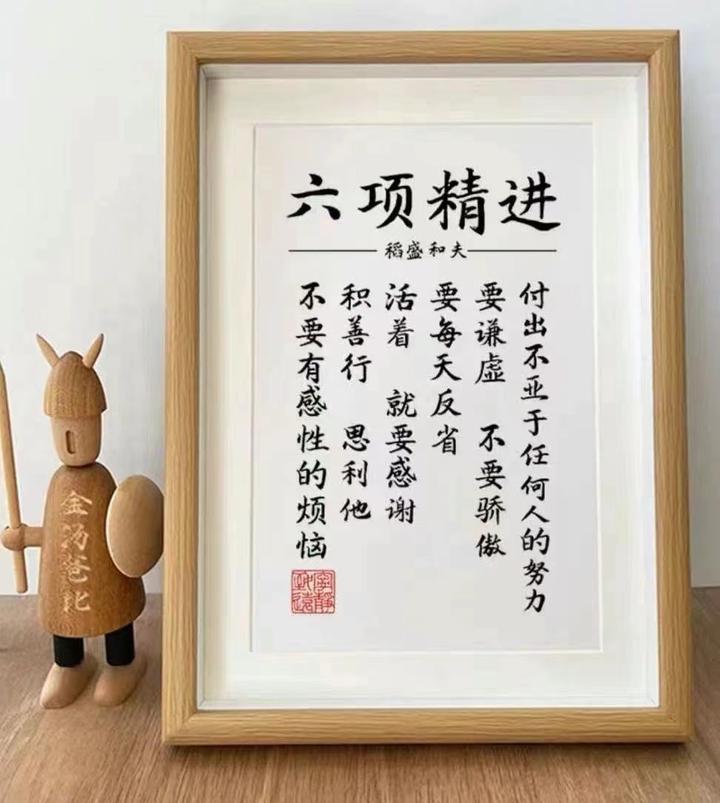 六项精进
稻盛和夫
付出不亚于任何人的努力
要谦虚 不要骄傲
要每天反省
活着 就要感谢
积善行 思利他
不要有感性的烦恼
宁静致远
金汤爸比